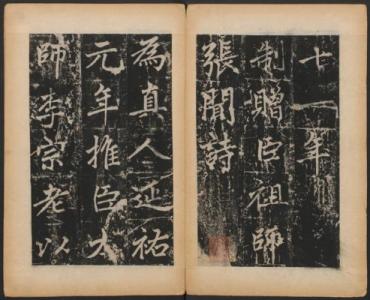 十一年
制贈臣祖師
張聞詩
為真人延祐
元年推臣大
師李宗老以